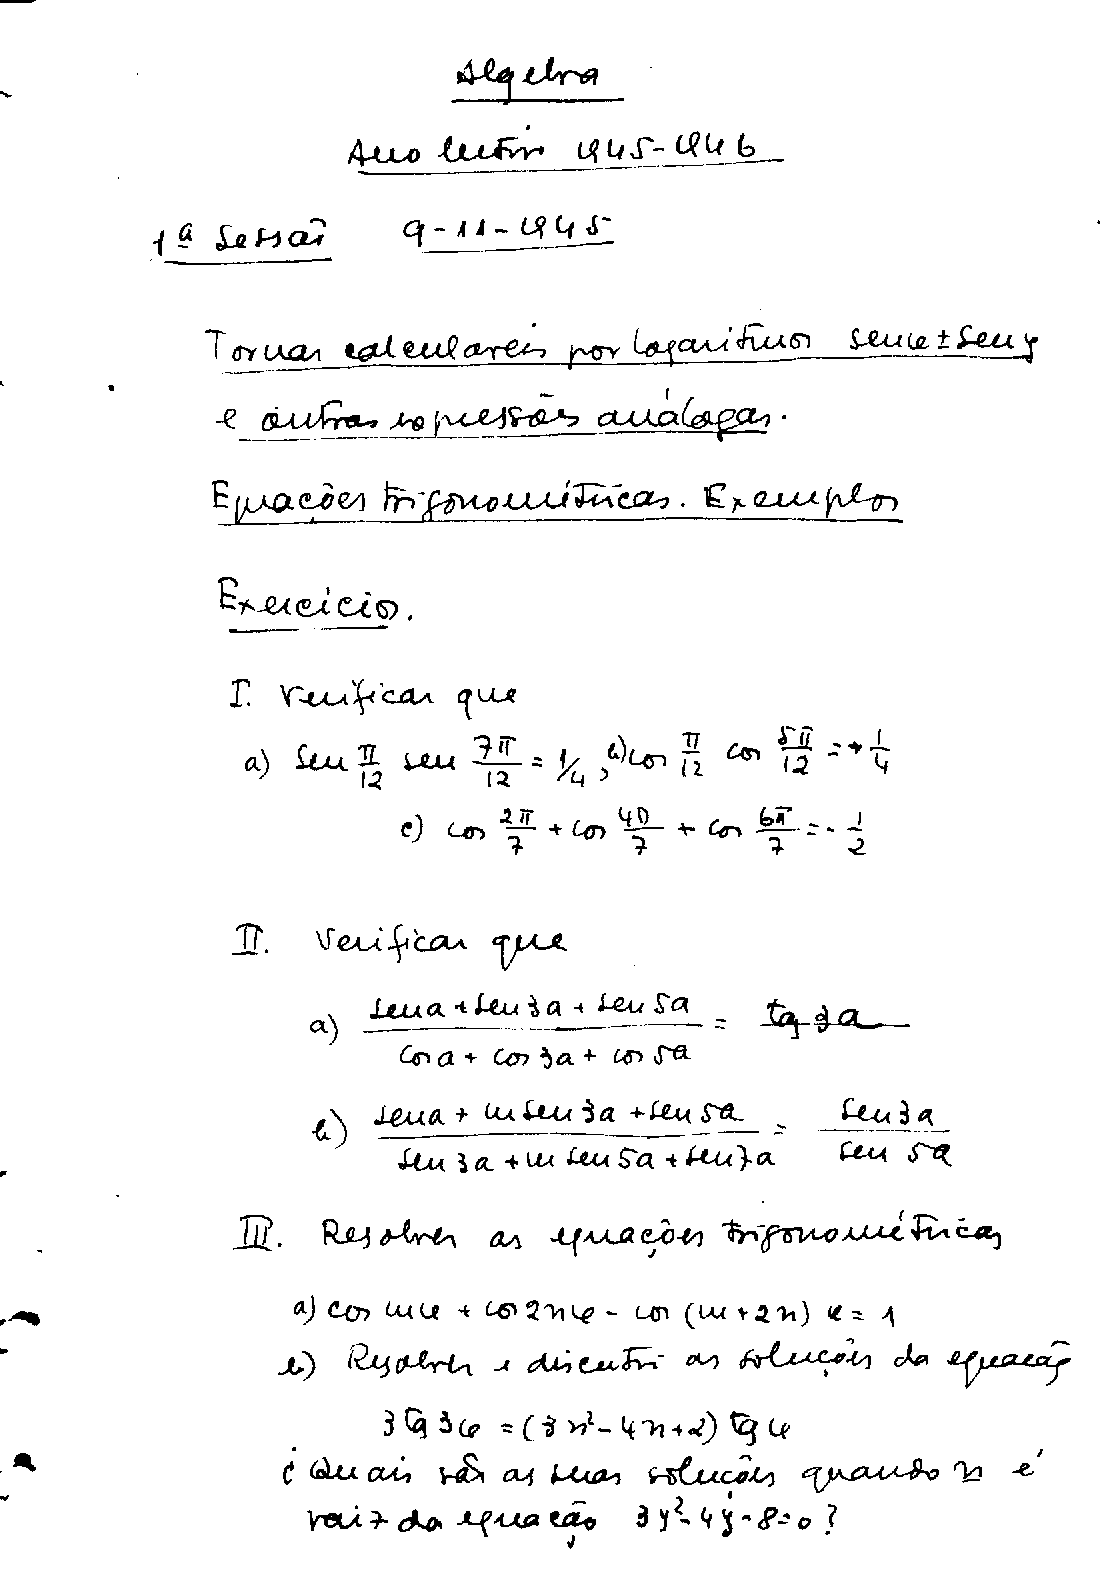 Algebra
Ano lectivo 1945-1946
1ª Sessão 9-11-1945
Tornar calculaveis por logaritmos sen x ± sen y
e outras expressões análogas.
Equações trigonométricas. Exemplos
Exercicios.
I. Verificar que
a) sen π/12 sen 7π/12 = 1/4, b) cos π/12 cos 5π/12 = + 1/4
c) cos 2π/7 + cos 4π/7 + cos 6π/7 = - 1/2
II. Verificar que
a) (sen a + sen 3a + sen 5a)/(cos a + cos 3a + cos 5a) = tg 3a
b) (sen a + m sen 3a + sen 5a)/(sen 3a + m sen 5a + sen 7a) = sen 3a/sen 5a
III. Resolver as equações trigonométricas
a) cos mx + cos 2nx - cos (m + 2n) x = 1
b) Resolver e discutir as soluções da equação
3 tg 3x = (3n² - 4n + 2) tg x
¿ Quais são as suas soluções quando n é
raiz da equação 3y² - 4y - 8 = 0 ?